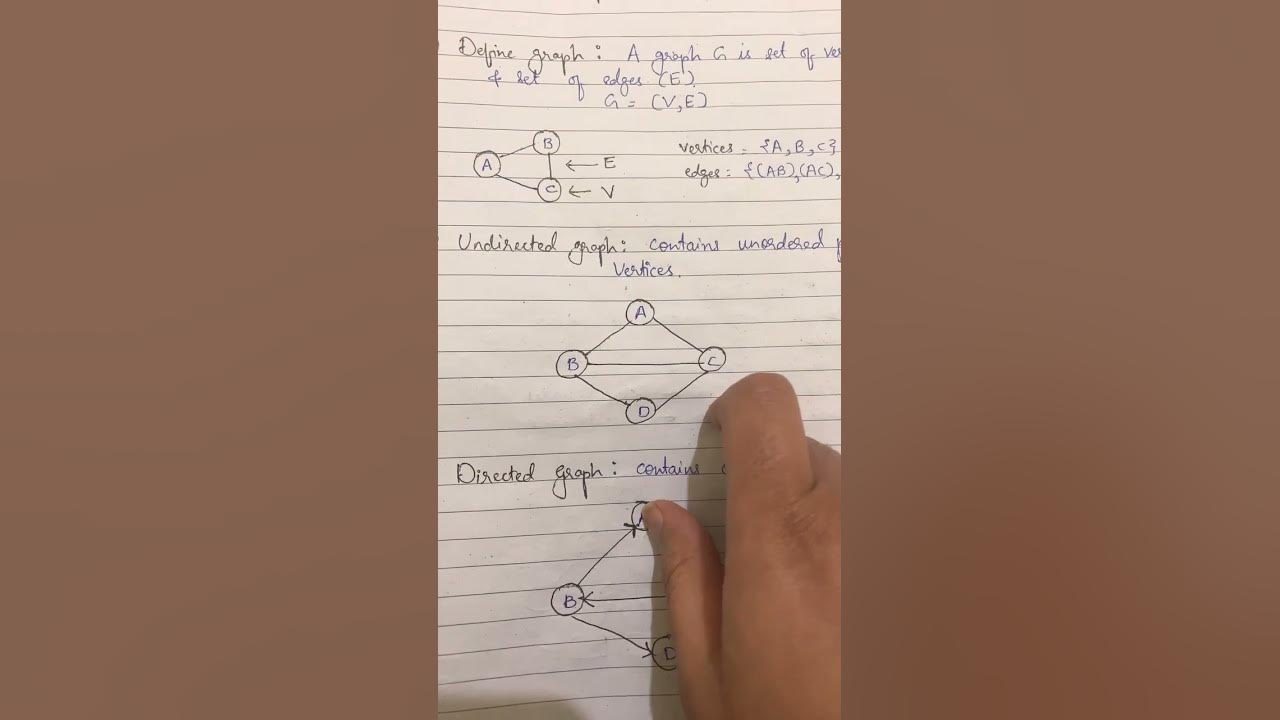 Define graph : A graph G is set of ver
& set of edges (E).
G = (V,E)
B
A
← E
C
← V
vertices = {A, B, C}
edges = {(AB),(AC),
Undirected graph: contains unordered
vertices.
A
B
C
D
Directed graph: contains
B
D